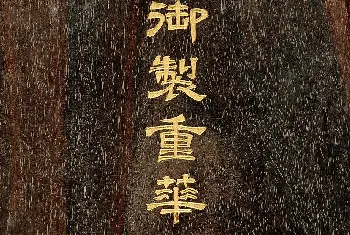 御製重華